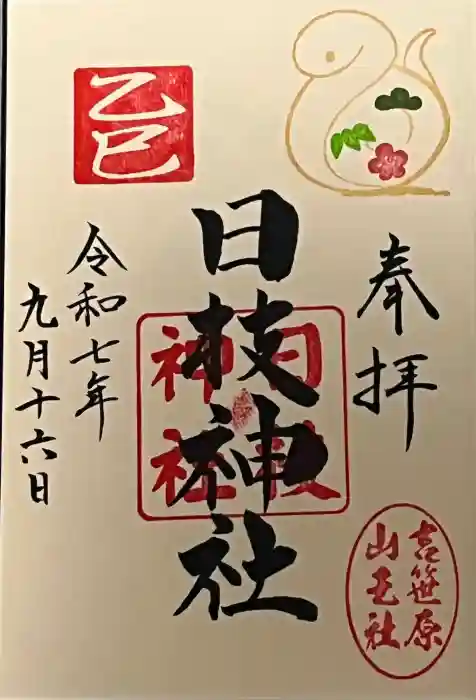 奉拝
日枝神社
日枝
神社
令和七年
九月十六日
乙巳
吉笹原
山王社